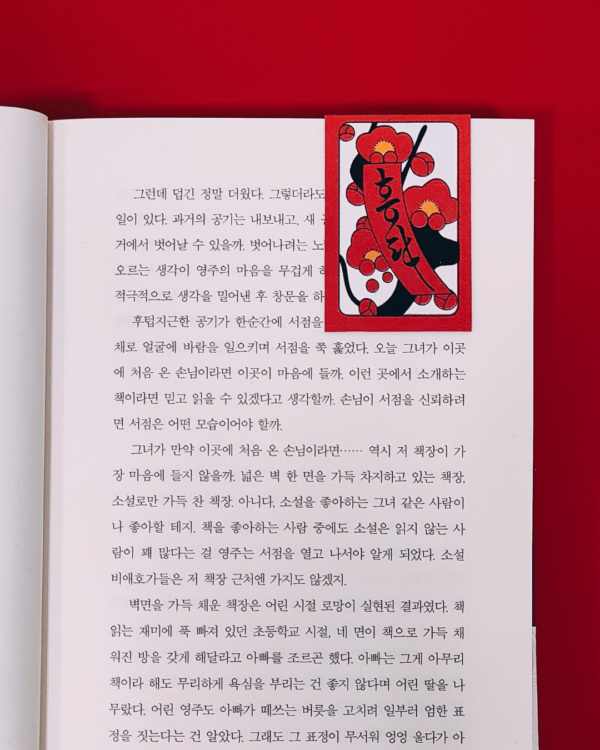 홍단
그런데 덥긴 정말 더웠다. 그렇더라도
일이 있다. 과거의 공기는 내보내고, 새
거에서 벗어날 수 있을까. 벗어나려는 노
오르는 생각이 영주의 마음을 무겁게 하
적극적으로 생각을 밀어낸 후 창문을 하
후텁지근한 공기가 한순간에 서점을
채로 얼굴에 바람을 일으키며 서점을 쭉 훑었다. 오늘 그녀가 이곳
에 처음 온 손님이라면 이곳이 마음에 들까. 이런 곳에서 소개하는
책이라면 믿고 읽을 수 있겠다고 생각할까. 손님이 서점을 신뢰하려
면 서점은 어떤 모습이어야 할까.
그녀가 만약 이곳에 처음 온 손님이라면…… 역시 저 책장이 가
장 마음에 들지 않을까. 넓은 벽 한 면을 가득 차지하고 있는 책장,
소설로만 가득 찬 책장. 아니다, 소설을 좋아하는 그녀 같은 사람이
나 좋아할 테지. 책을 좋아하는 사람 중에도 소설은 읽지 않는 사
람이 꽤 많다는 걸 영주는 서점을 열고 나서야 알게 되었다. 소설
비애호가들은 저 책장 근처엔 가지도 않겠지.
벽면을 가득 채운 책장은 어린 시절 로망이 실현된 결과였다. 책
읽는 재미에 푹 빠져 있던 초등학교 시절, 네 면이 책으로 가득 채
워진 방을 갖게 해달라고 아빠를 조르곤 했다. 아빠는 그게 아무리
책이라 해도 무리하게 욕심을 부리는 건 좋지 않다며 어린 딸을 나
무랐다. 어린 영주도 아빠가 떼쓰는 버릇을 고치려 일부러 엄한 표
정을 짓는다는 건 알았다. 그래도 그 표정이 무서워 엉엉 울다가 아